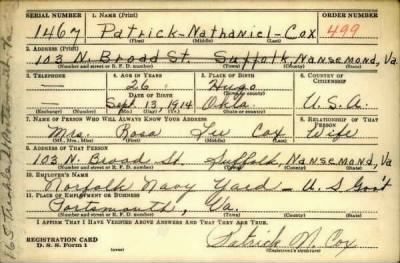 SERIAL NUMBER 1. NAME (Print) ORDER NUMBER
1467 Patrick-Nathaniel-Cox 499
(First) (Middle) (Last)
2. ADDRESS (Print)
103 N. Broad St. Suffolk, Nansemond, Va.
(Number and street or R. F. D. number) (Town) (County) (State)
3. TELEPHONE 4. AGE IN YEARS 5. PLACE OF BIRTH 6. COUNTRY OF CITIZENSHIP
26 Hugo
DATE OF BIRTH (Town or county)
Sept. 13, 1914 Okla. U.S.A.
(Exchange) (Number) (Mo.) (Day) (Yr.) (State or country)
7. NAME OF PERSON WHO WILL ALWAYS KNOW YOUR ADDRESS 8. RELATIONSHIP OF THAT PERSON
Mrs. Rosa Lee Cox Wife
(Mr., Mrs., Miss) (First) (Middle) (Last)
9. ADDRESS OF THAT PERSON
103 N. Broad St. Suffolk, Nansemond, Va
(Number and street or R. F. D. number) (Town) (County) (State)
10. EMPLOYER'S NAME
Norfolk Navy Yard - U S Gov't
11. PLACE OF EMPLOYMENT OR BUSINESS
Portsmouth, Va.
(Number and street or R. F. D. number) (Town) (County) (State)
I AFFIRM THAT I HAVE VERIFIED ABOVE ANSWERS AND THAT THEY ARE TRUE.
REGISTRATION CARD
D. S. S. Form 1 Patrick N. Cox